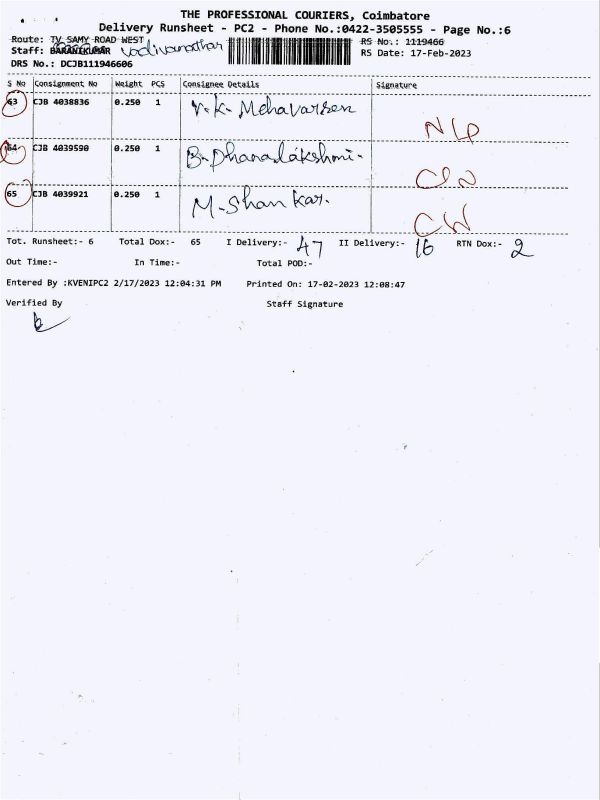 THE PROFESSIONAL COURIERS, Coimbatore
Delivery Runsheet - PC2 - Phone No.:0422-3505555 - Page No.:6
Route: TV SAMY ROAD WEST RS No.: 1119466
Staff: BARANIKUMAR RS Date: 17-Feb-2023
DRS No.: DCJB111946606
S No Consignment No Weight PCS Consignee Details Signature
63 CJB 4038836 0.250 1 V.K. Mehavarsen
NLP
64 CJB 4039590 0.250 1 B. Dhanalakshmi.
65 CJB 4039921 0.250 1 M. Shankar.
Tot. Runsheet:- 6 Total Dox:- 65 I Delivery:- 47 II Delivery:- 16 RTN Dox:- 2
Out Time:- In Time:- Total POD:-
Entered By :KVENIPC2 2/17/2023 12:04:31 PM Printed On: 17-02-2023 12:08:47
Verified By Staff Signature